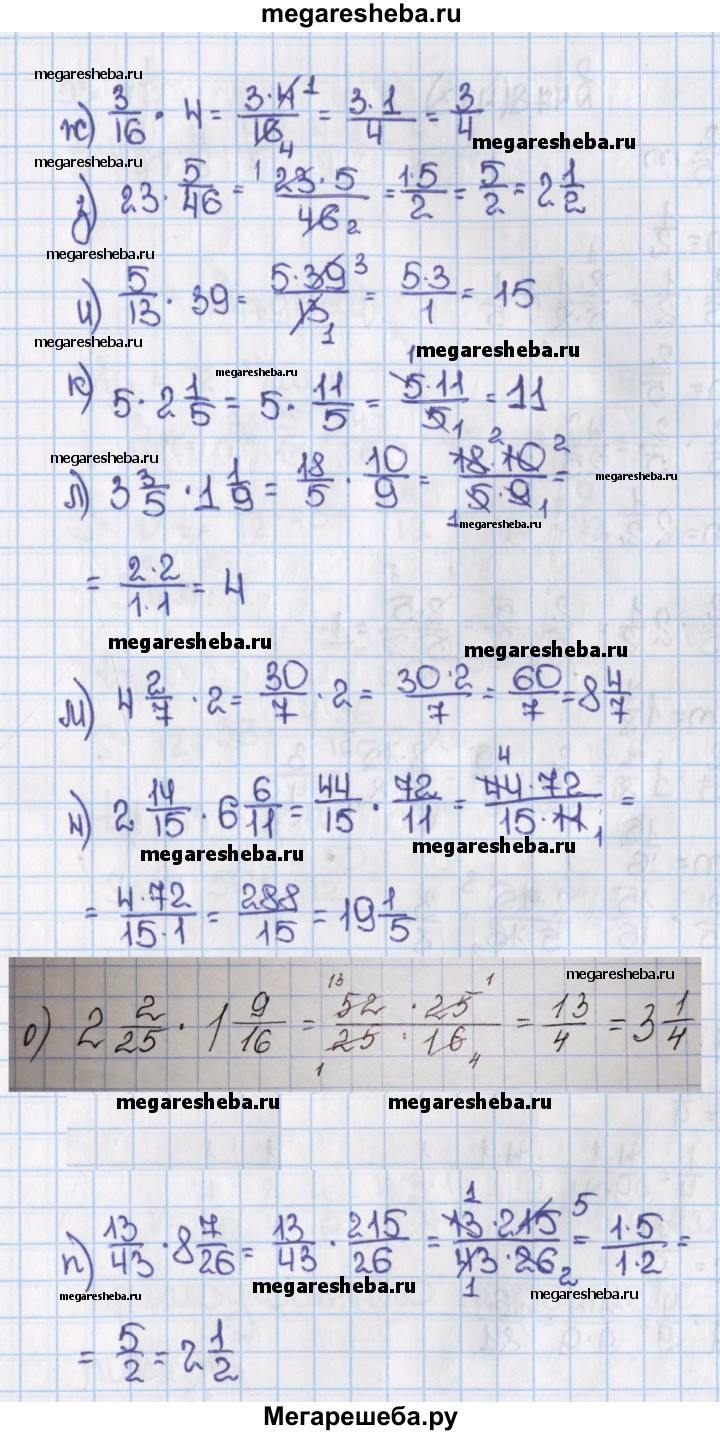 megaresheba.ru
megaresheba.ru
ж) 3/16 · 4 = 3·4/16 = 3·1/4 = 3/4
1
4
megaresheba.ru
megaresheba.ru
з) 23 · 5/46 = 23·5/46 = 1·5/2 = 5/2 = 2 1/2
1
2
megaresheba.ru
megaresheba.ru
и) 5/13 · 39 = 5·39/13 = 5·3/1 = 15
3
1
megaresheba.ru
megaresheba.ru
megaresheba.ru
к) 5 · 2 1/5 = 5 · 11/5 = 5·11/5 = 11
1
1
megaresheba.ru
л) 3 3/5 · 1 1/9 = 18/5 · 10/9 = 18·10/5·9 =
2 2
1 1
megaresheba.ru
megaresheba.ru
megaresheba.ru
= 2·2/1·1 = 4
megaresheba.ru
megaresheba.ru
м) 4 2/7 · 2 = 30/7 · 2 = 30·2/7 = 60/7 = 8 4/7
н) 2 14/15 · 6 6/11 = 44/15 · 72/11 = 44·72/15·11 =
4
1
megaresheba.ru
megaresheba.ru
= 4·72/15·1 = 288/15 = 19 1/5
megaresheba.ru
о) 2 2/25 · 1 9/16 = 52·25/25·16 = 13/4 = 3 1/4
13 1
1 4
megaresheba.ru
megaresheba.ru
megaresheba.ru
п) 13/43 · 8 7/26 = 13/43 · 215/26 = 13·215/43·26 = 1·5/1·2 =
1 5
1 2
megaresheba.ru
megaresheba.ru
megaresheba.ru
= 5/2 = 2 1/2
Мегарешеба.ру